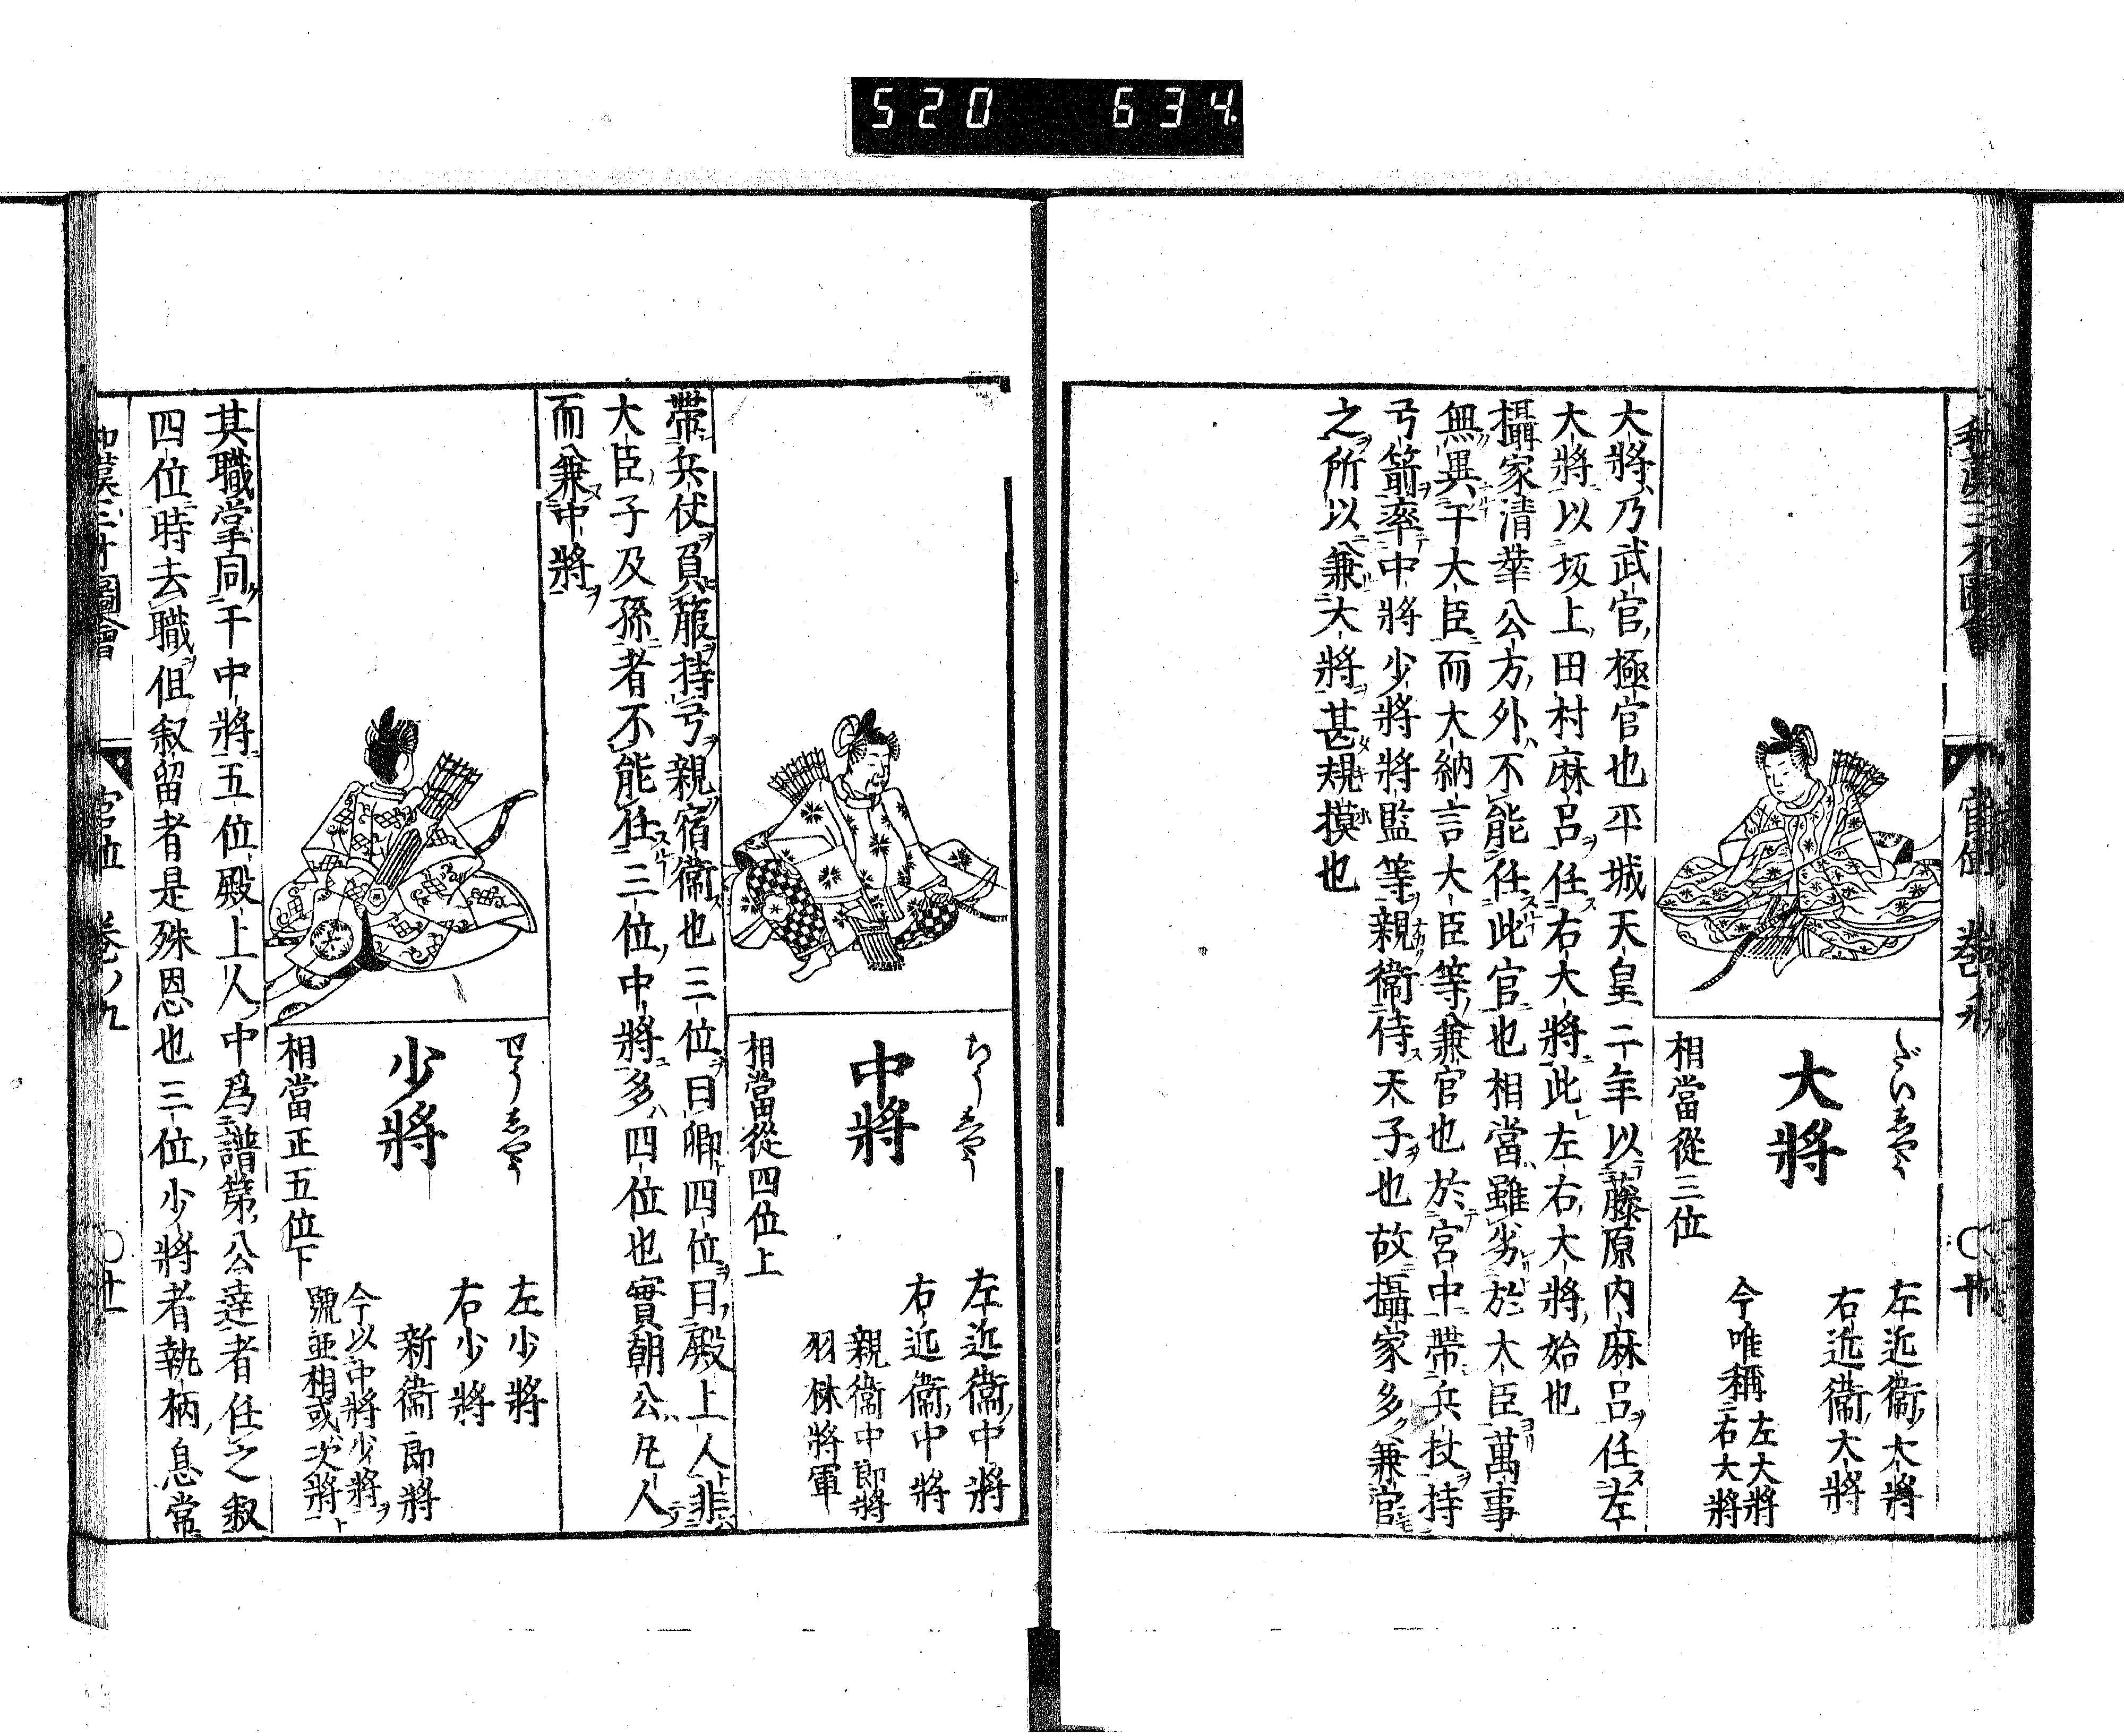 520 634
和漢三才圖會
官位 卷ノ九
〇廿
だいしやう
大將
左近衞大將
右近衞大將
今唯稱左大將
右大將
相當從三位
大將乃武官極官也平城天皇二年以藤原内麻呂任左
大將以坂上田村麻呂任右大將此左右大將始也
攝家清華公方外不能任此官也相當雖劣於大臣萬事
無異于大臣而大納言大臣等兼官也於宮中帶兵杖持
弓箭率中將少將將監等親衞侍天子也故攝家多兼官
之所以兼大將甚規摸也
ちうしやう
中將
左近衞中將
右近衞中將
親衞中郎將
羽林將軍
相當從四位上
帶兵仗負箙持弓親宿衞也三位曰卿四位曰殿上人非
大臣子及孫者不能任三位中將多四位也實朝公凡人
而兼中將
せうしやう
少將
左少將
右少將
新衞郎將
今以中將少將
號亜相或次將
相當正五位下
其職掌同于中將五位殿上人中爲譜第公達者任之叙
四位時去職但叙留者是殊恩也三位少將者執柄息常
和漢三才圖會
官位 卷ノ九
〇廿一